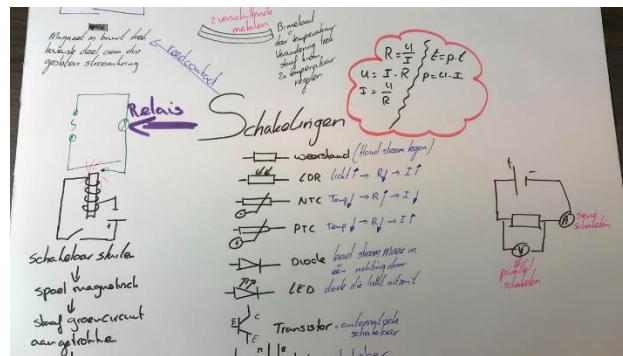 2 verschillende
metalen
Magneet in buurt
gesloten stroomkring
reedcontact
Bimetaal
=
door temperatuur
verandering
krom,
temperatuur
regelen
R = U/I
U = I · R
I = U/R
E = p · t
P = U · I
Relais
Schakelingen
weerstand (Houd stroom tegen)
LDR licht↑ → R↓ → I↑
NTC Temp↓ → R↑ → I↓
PTC Temp↓ → R↓ → I↑
Diode laat stroom maar in
één richting door
LED diode die licht uitzent
B C E
Transistor = automatische
schakelaar
schakelaar sluiten
↓
spoel magnetisch
↓
staaf groen circuit
aangetrokken
+ -
A
serie
schakelen
V
parallel
schakelen